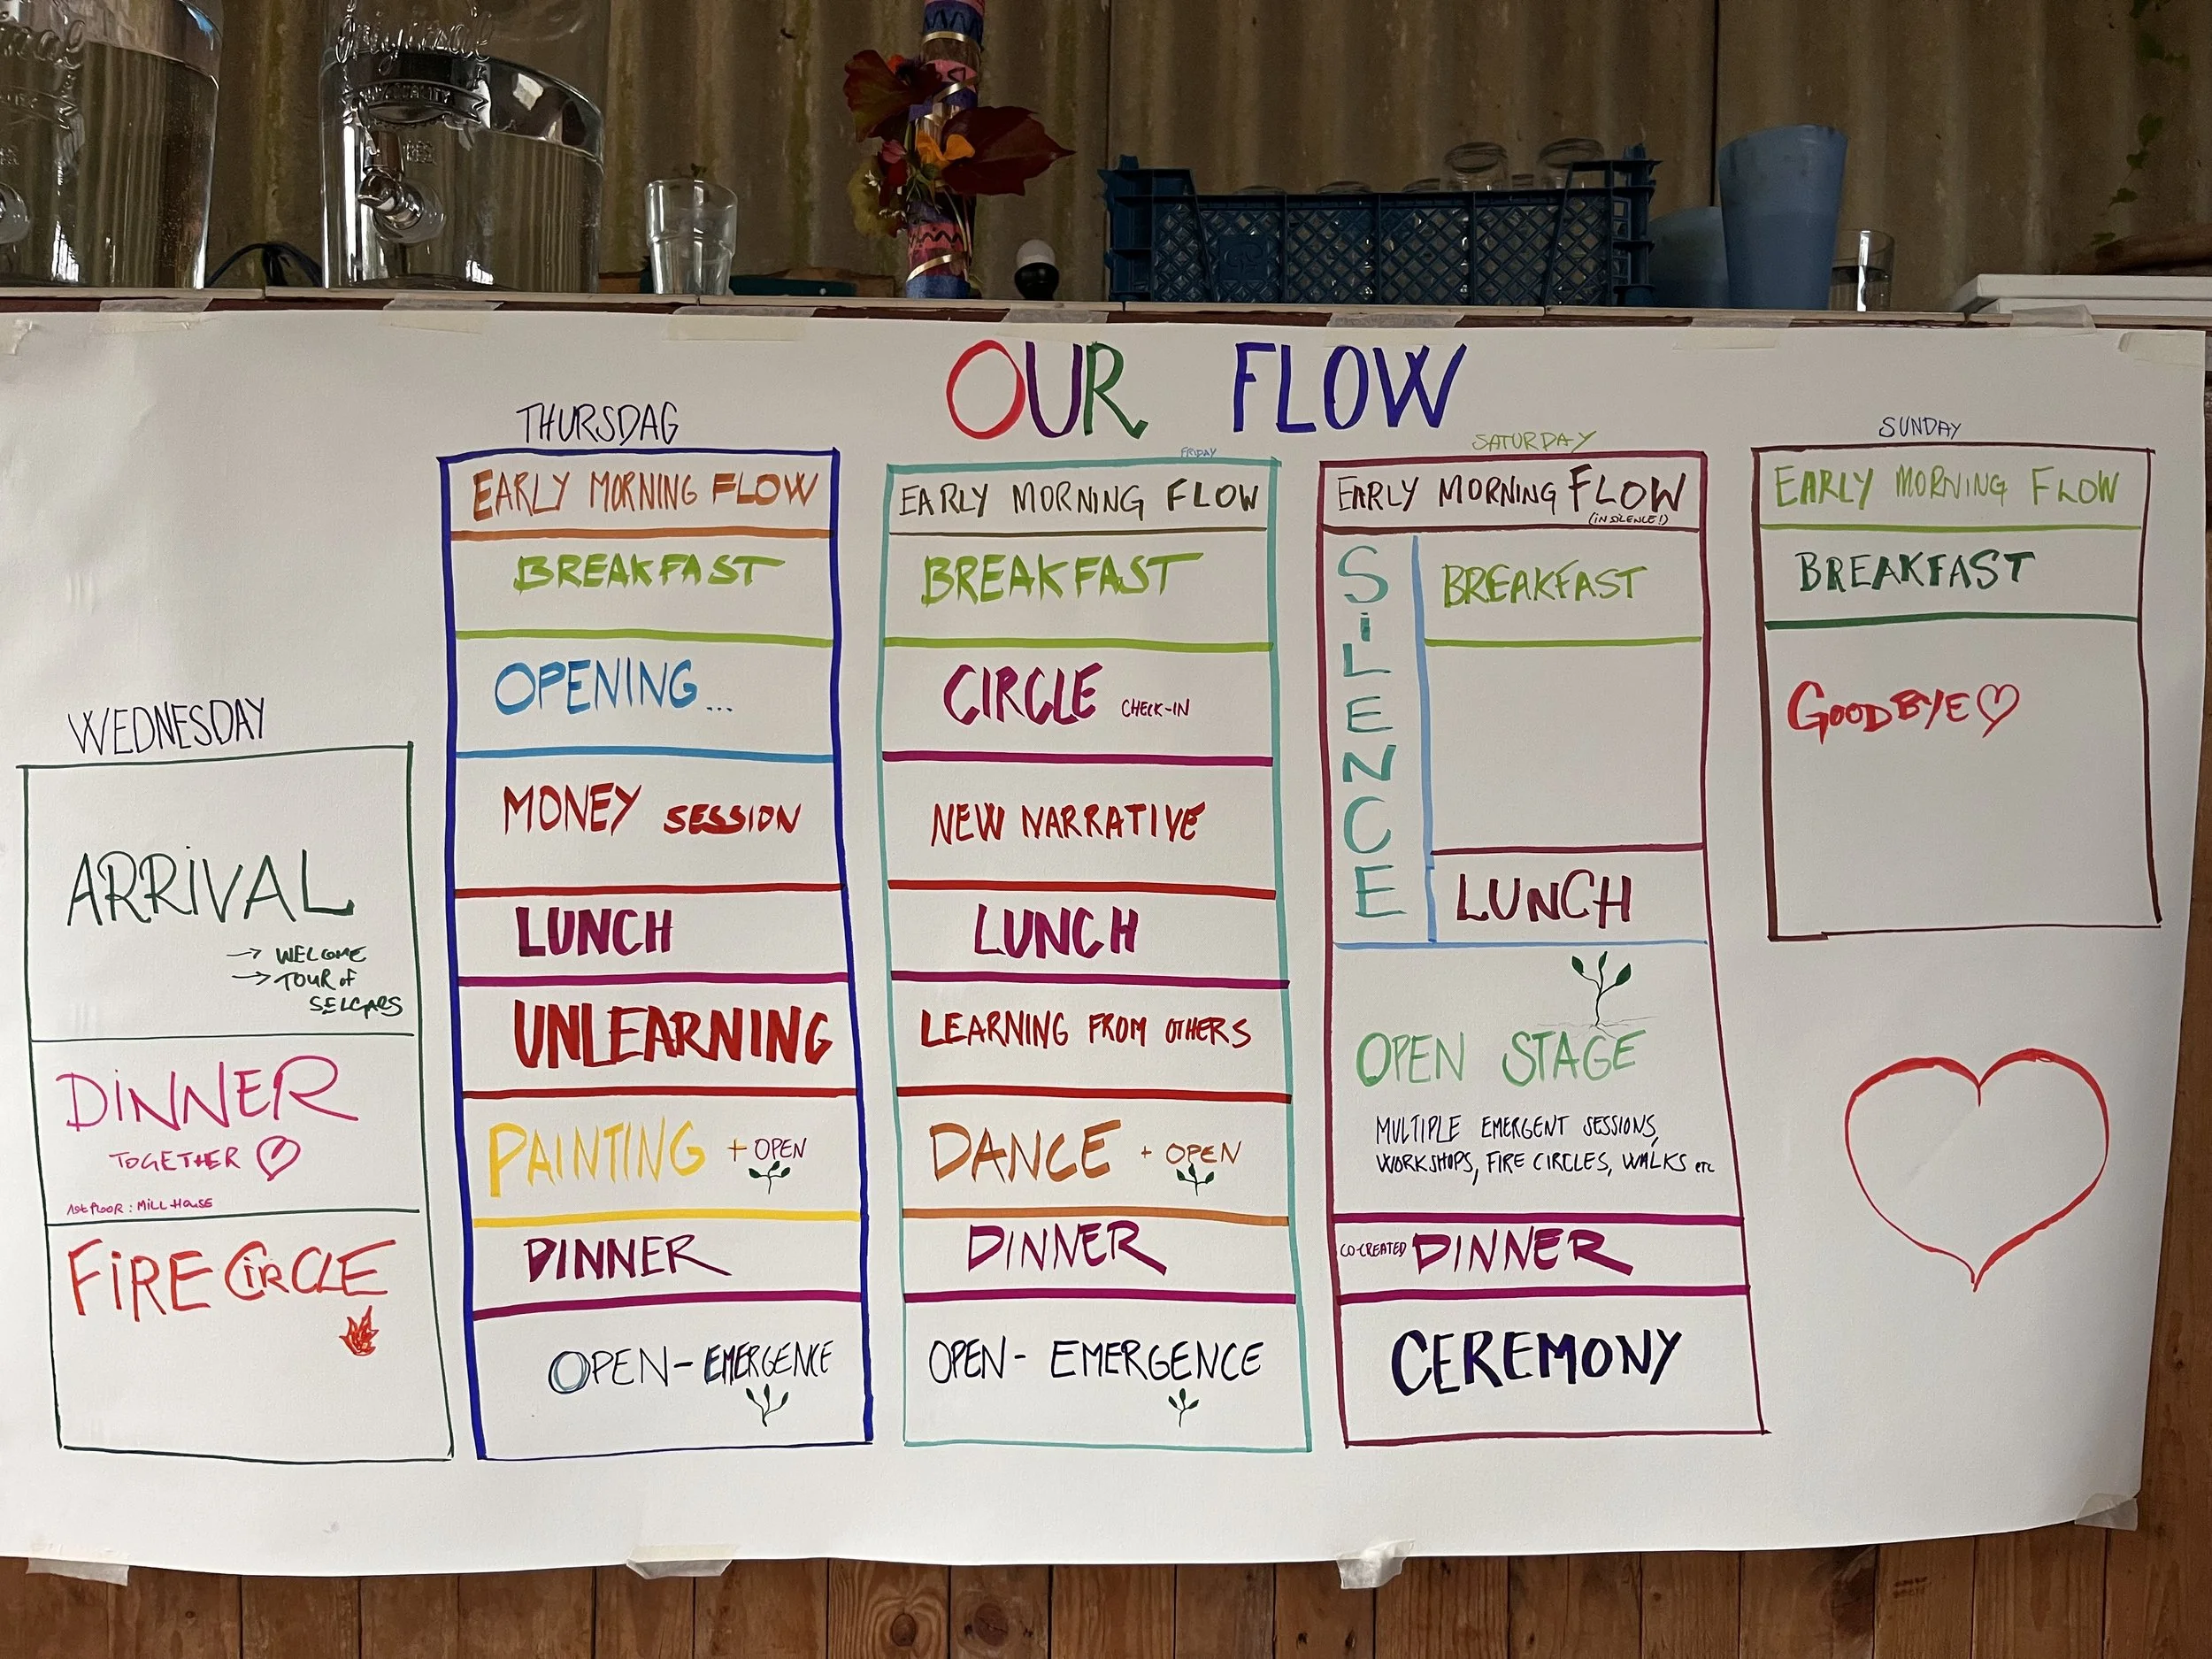 Original
OUR FLOW
WEDNESDAY
ARRiVAL
→ WELCOME
→ TOUR of
SELGARS
DiNNER
TOGETHER ♡
1st floor: Mill House
FiRE CiRCLE
THURSDAG
EARLY MORNING FLOW
BREAKFAST
OPENING...
MONEY SESSION
LUNCH
UNLEARNING
PAINTING + OPEN
DINNER
OPEN-EMERGENCE
FRIDAY
EARLY MORNING FLOW
BREAKFAST
CIRCLE CHECK-IN
NEW NARRATIVE
LUNCH
LEARNING FROM OTHERS
DANCE + OPEN
DINNER
OPEN- EMERGENCE
SATURDAY
EARLY MORNING FLOW
(IN SILENCE!)
SiLENCE
BREAKFAST
LUNCH
OPEN STAGE
MULTIPLE EMERGENT SESSIONS,
WORKSHOPS, FIRE CIRCLES, WALKS etc
CO-CREATED DINNER
CEREMONY
SUNDAY
EARLY MORNING FLOW
BREAKFAST
GOODBYE ♡